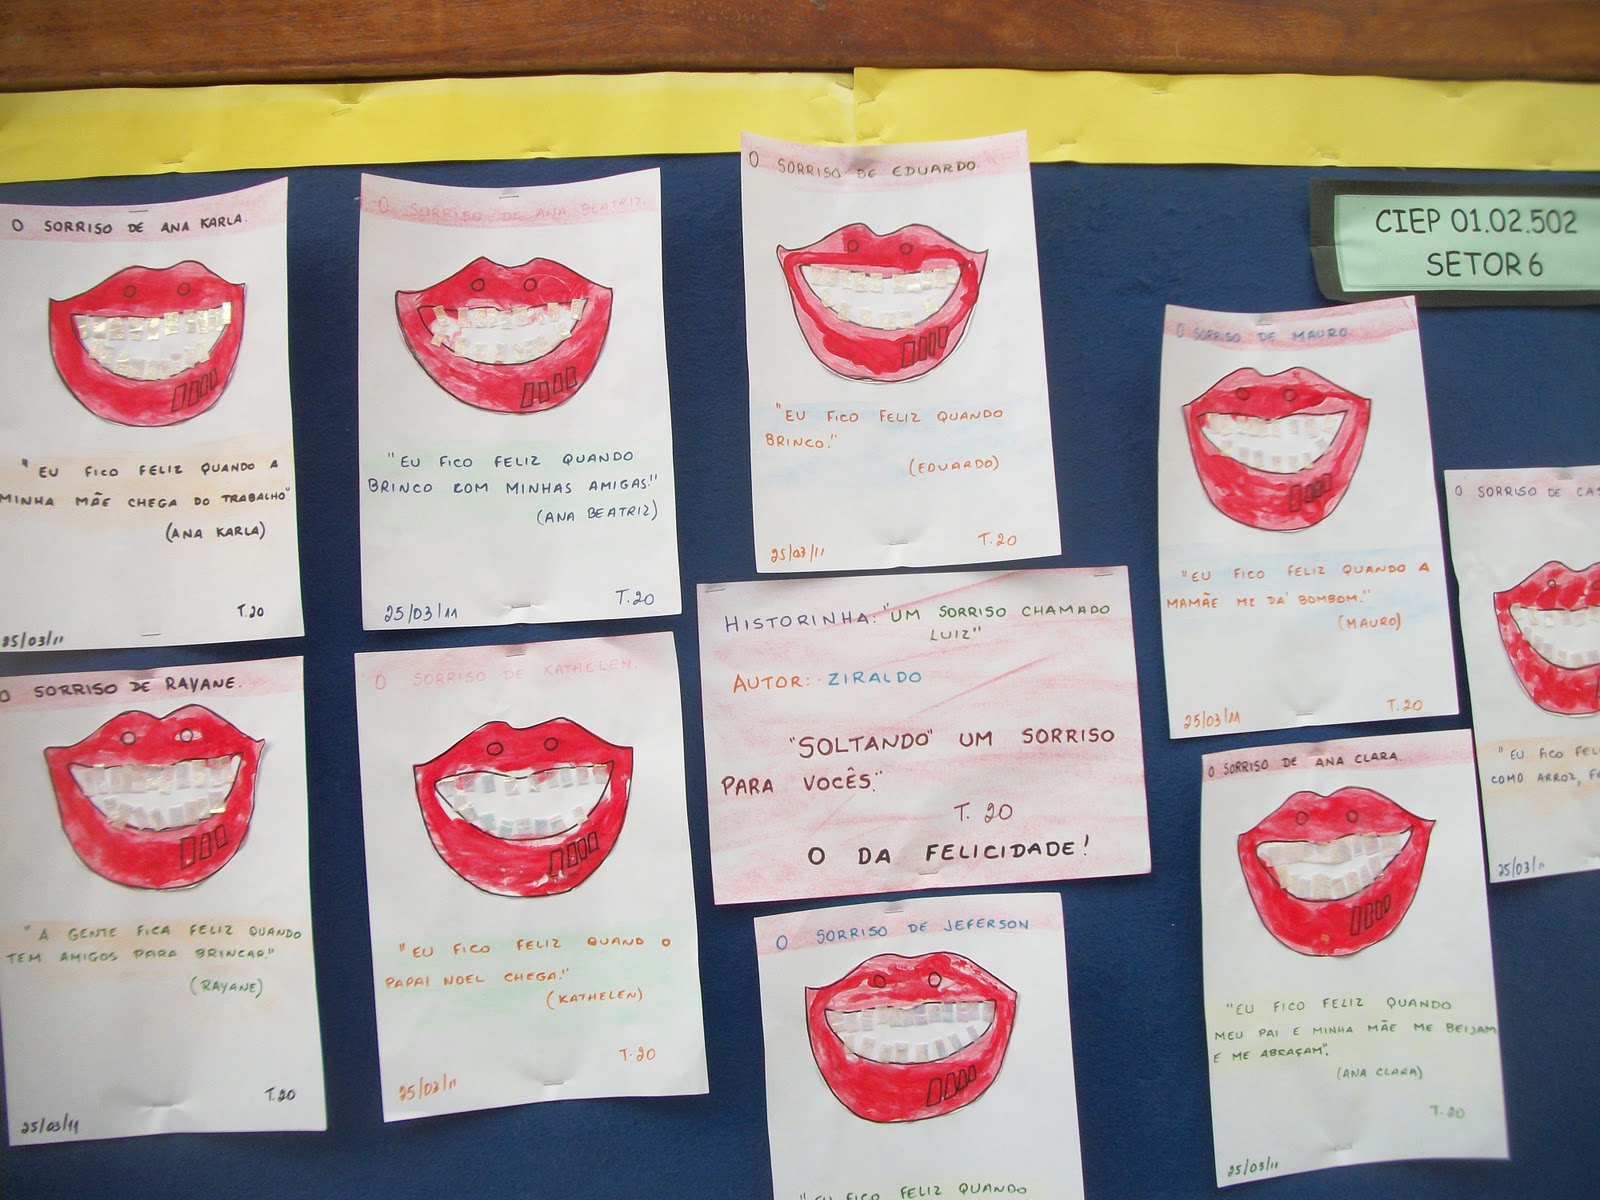 O SORRISO DE ANA KARLA.
"EU FICO FELIZ QUANDO A
MINHA MÃE CHEGA DO TRABALHO"
(ANA KARLA)
T.20
25/03/11
O SORRISO DE ANA BEATRIZ.
"EU FICO FELIZ QUANDO
BRINCO COM MINHAS AMIGAS!"
(ANA BEATRIZ)
T.20
25/03/11
O SORRISO DE EDUARDO
"EU FICO FELIZ QUANDO
BRINCO."
(EDUARDO)
T.20
25/03/11
CIEP 01.02.502
SETOR 6
O SORRISO DE MAURO.
"EU FICO FELIZ QUANDO A
MAMÃE ME DÁ BOMBOM."
(MAURO)
T.20
25/03/11
O SORRISO DE
"EU FICO
COMO ARROZ,
25/03/11
O SORRISO DE RAYANE.
"A GENTE FICA FELIZ QUANDO
TEM AMIGOS PARA BRINCAR"
(RAYANE)
T.20
25/03/11
O SORRISO DE KATHELEN.
"EU FICO FELIZ QUAND O
PAPAI NOEL CHEGA!"
(KATHELEN)
T.20
25/03/11
HISTORINHA: "UM SORRISO CHAMADO
LUIZ"
AUTOR: ZIRALDO
"SOLTANDO" UM SORRISO
PARA VOCÊS."
T. 20
O DA FELICIDADE!
O SORRISO DE JEFERSON
"EU FICO FELIZ QUANDO
O SORRISO DE ANA CLARA.
"EU FICO FELIZ QUANDO
MEU PAI E MINHA MÃE ME BEIJAM
E ME ABRAÇAM".
(ANA CLARA)
T.20
25/03/11